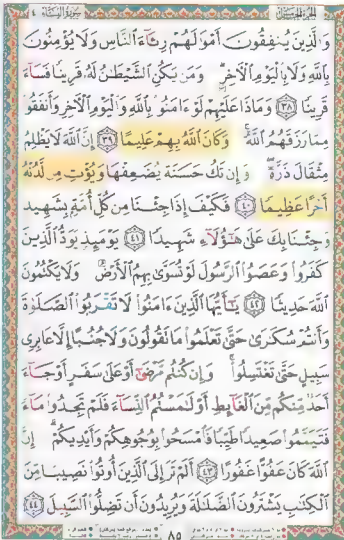 سورة النساء ٤
والذين ينفقون أموالهم رئاء الناس ولا يؤمنون
بالله ولا باليوم الآخر ومن يكن الشيطان له قرينا فساء
قرينا ٣٨ وماذا عليهم لو ءامنوا بالله واليوم الآخر وأنفقوا
مما رزقهم الله وكان الله بهم عليما ٣٩ إن الله لا يظلم
مثقال ذرة وإن تك حسنة يضعفها ويؤت من لدنه
أجرا عظيما ٤٠ فكيف إذا جئنا من كل أمة بشهيد
وجئنا بك على هؤلاء شهيدا ٤١ يومئذ يود الذين
كفروا وعصوا الرسول لو تسوى بهم الأرض ولا يكتمون
الله حديثا ٤٢ يأيها الذين ءامنوا لا تقربوا الصلوة
وأنتم سكرى حتى تعلموا ما تقولون ولا جنبا إلا عابرى
سبيل حتى تغتسلوا وإن كنتم مرضى أو على سفر أو جاء
أحد منكم من الغائط أو لمستم النساء فلم تجدوا ماء
فتيمموا صعيدا طيبا فامسحوا بوجوهكم وأيديكم إن
الله كان عفوا غفورا ٤٣ ألم تر إلى الذين أوتوا نصيبا من
الكتب يشترون الضللة ويريدون أن تضلوا السبيل ٤٤
٨٥